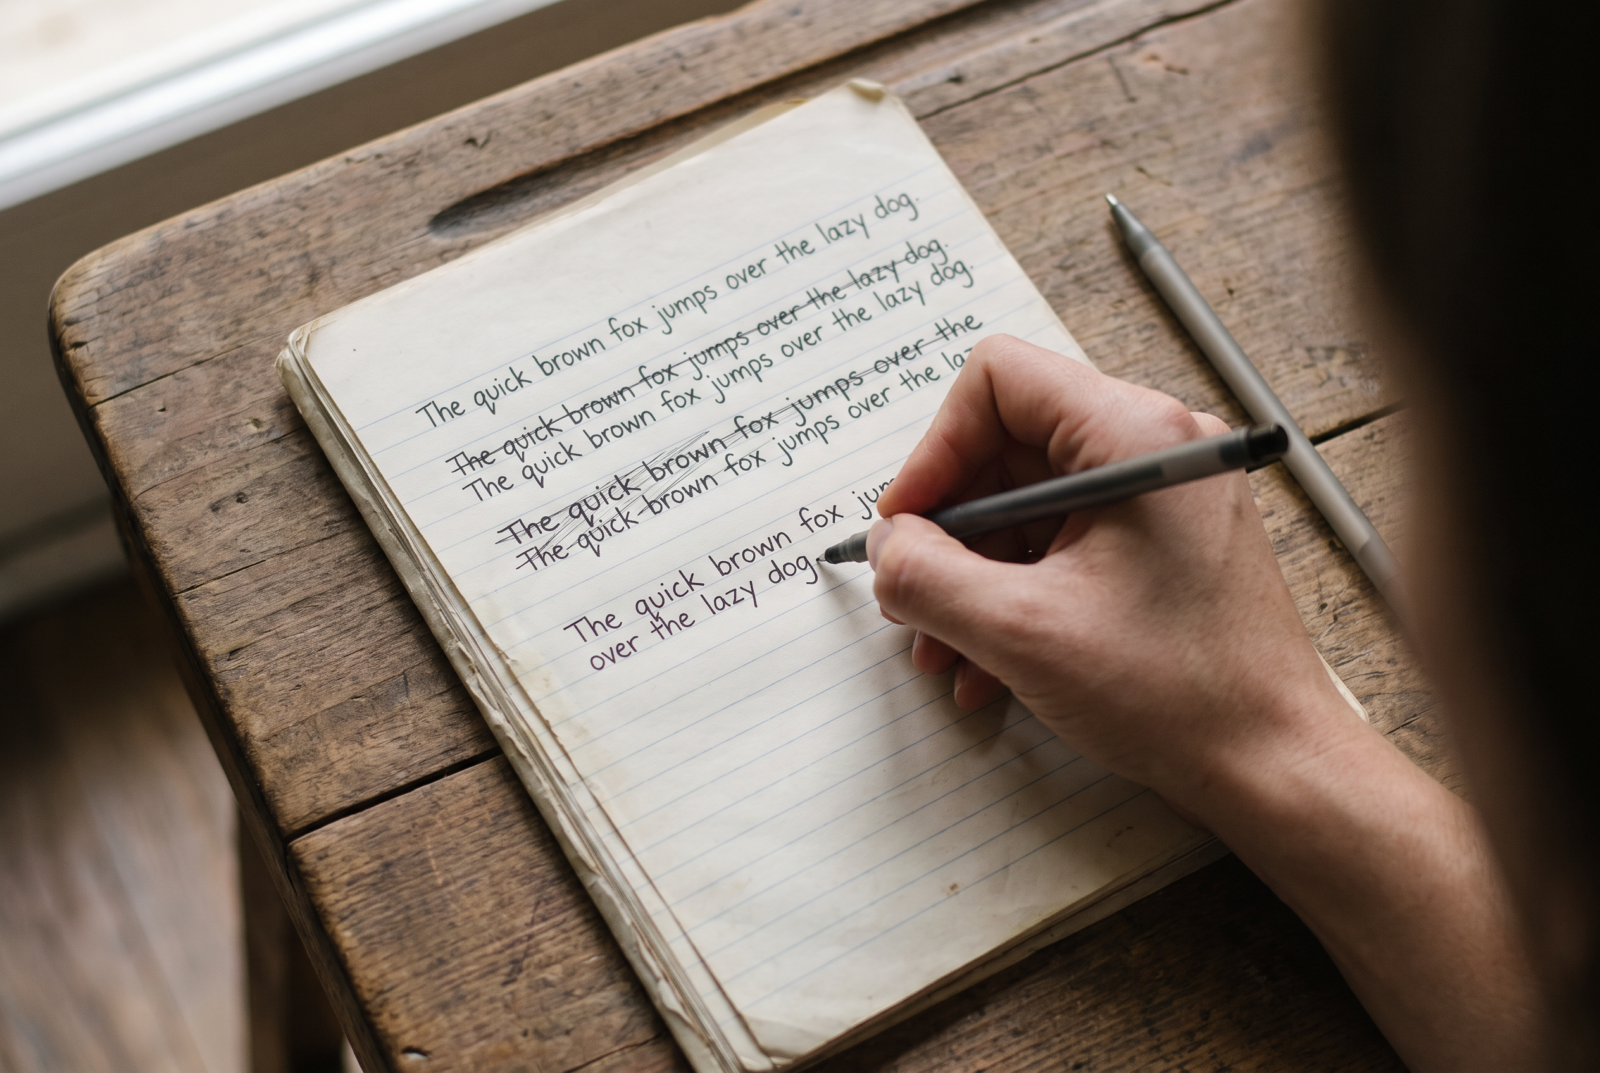 The quick brown fox jumps over the lazy dog.
The quick brown fox jumps over the lazy dog.
The quick brown fox jumps over the lazy dog.
The quick brown fox jumps over the
The quick brown fox jumps over the
The quick brown fox
over the lazy dog.